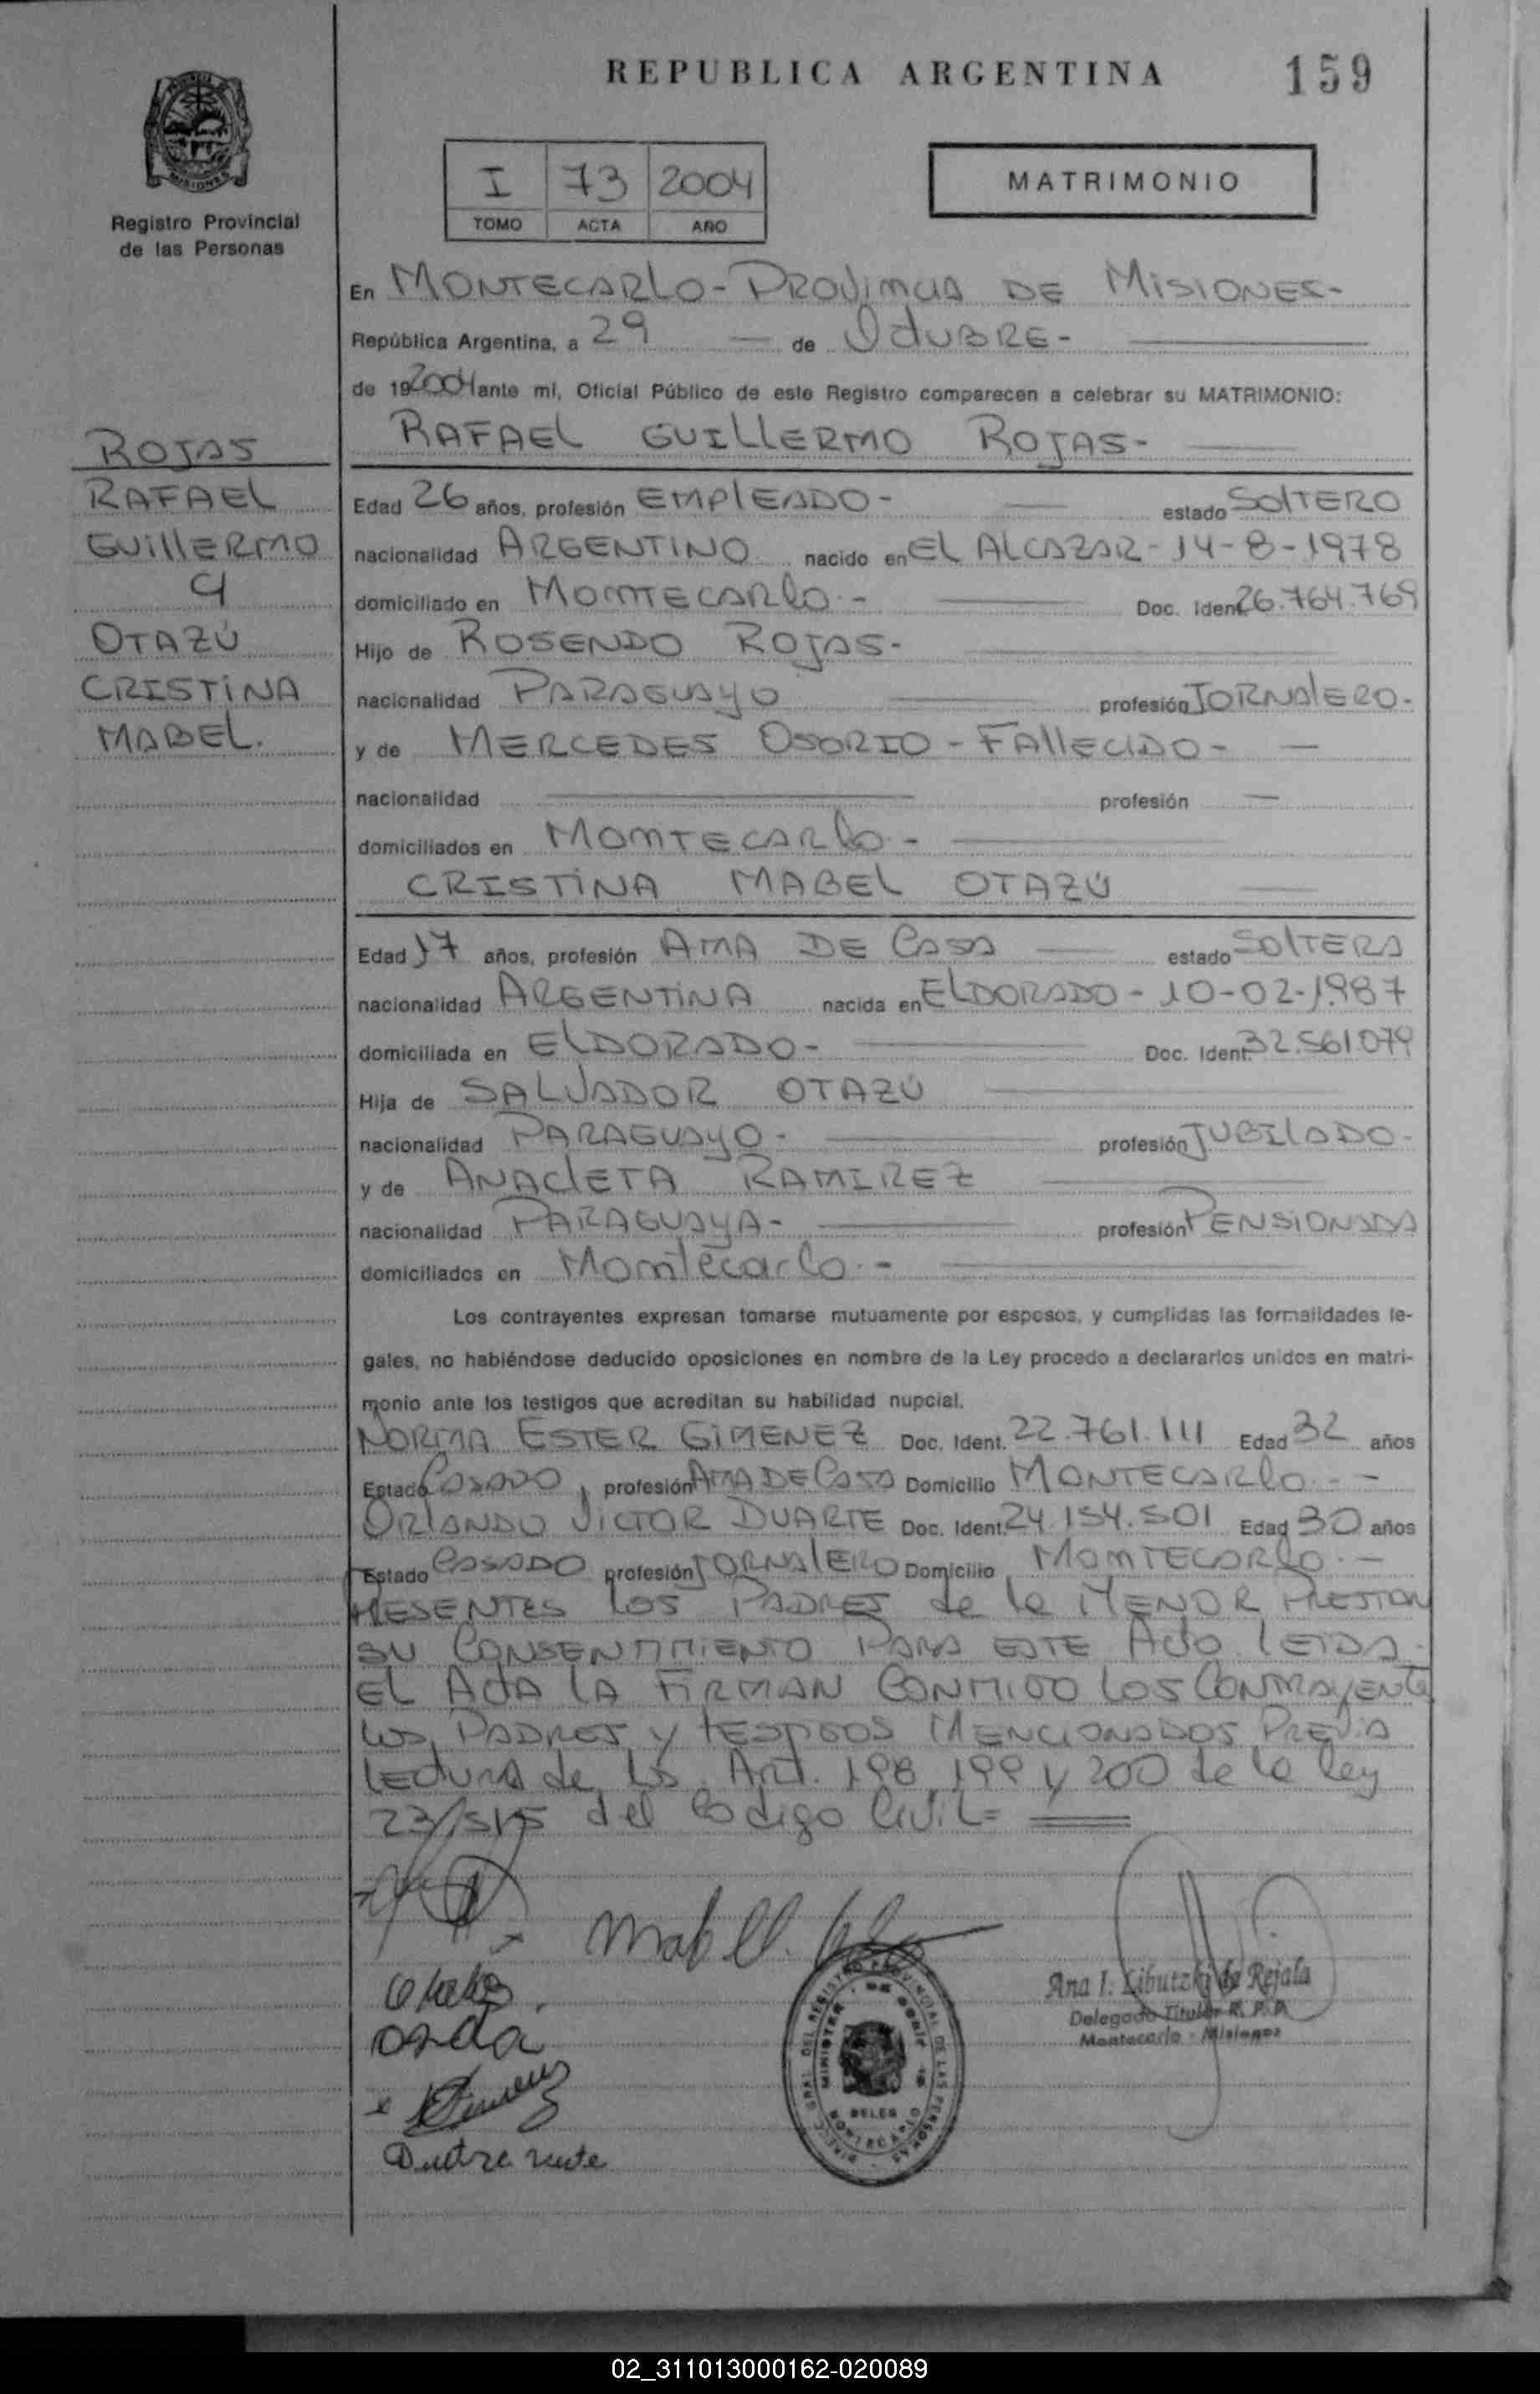 REPUBLICA ARGENTINA
159
MISIONES
Registro Provincial
de las Personas
I 73 2004
TOMO ACTA AÑO
MATRIMONIO
En MONTECARLO - PROVINCIA DE MISIONES -
República Argentina, a 29 — de OCTUBRE -
de 192004 ante mi, Oficial Público de este Registro comparecen a celebrar su MATRIMONIO:
RAFAEL GUILLERMO ROJAS -
ROJAS
RAFAEL
GUILLERMO
Y
OTAZÚ
CRISTINA
MABEL.
Edad 26 años, profesión EMPLEADO - estado SOLTERO
nacionalidad ARGENTINO nacido en EL ALCAZAR - 14-8-1978
domiciliado en MONTECARLO - Doc. Ident. 26.764.769
Hijo de ROSENDO ROJAS -
nacionalidad PARAGUAYO profesión JORNALERO -
y de MERCEDES OSORIO - FALLECIDO - —
nacionalidad — profesión —
domiciliados en MONTECARLO -
CRISTINA MABEL OTAZÚ
Edad 17 años, profesión AMA DE CASA estado SOLTERA
nacionalidad ARGENTINA nacida en ELDORADO - 10-02-1987
domiciliada en ELDORADO - Doc. Ident. 32.561.079
Hija de SALVADOR OTAZÚ
nacionalidad PARAGUAYO - profesión JUBILADO -
y de ANACLETA RAMIREZ
nacionalidad PARAGUAYA - profesión PENSIONADA
domiciliados en Montecarlo -
Los contrayentes expresan tomarse mutuamente por esposos, y cumplidas las formalidades le-
gales, no habiéndose deducido oposiciones en nombre de la Ley procedo a declararlos unidos en matri-
monio ante los testigos que acreditan su habilidad nupcial.
NORMA ESTER GIMENEZ Doc. Ident. 22.761.111 Edad 32 años
Estado CASADO, profesión AMA DE CASA Domicilio MONTECARLO - -
ORLANDO VICTOR DUARTE Doc. Ident. 24.154.501 Edad 30 años
Estado CASADO profesión JORNALERO Domicilio MONTECARLO -
PRESENTES LOS PADRES de la MENOR PRESTAN
SU CONSENTIMIENTO PARA ESTE ACTO LEIDA
EL ACTA LA FIRMAN CONMIGO LOS CONTRAYENTES
LOS PADRES Y TESTIGOS MENCIONADOS PREVIA
LECTURA de LOS Art. 198, 199 y 200 de la ley
23/515 del Codigo Civil =
Ana I. Libutzki de Rejala
Delegado Titular R. P. P.
Montecarlo - Misiones
02_311013000162-020089